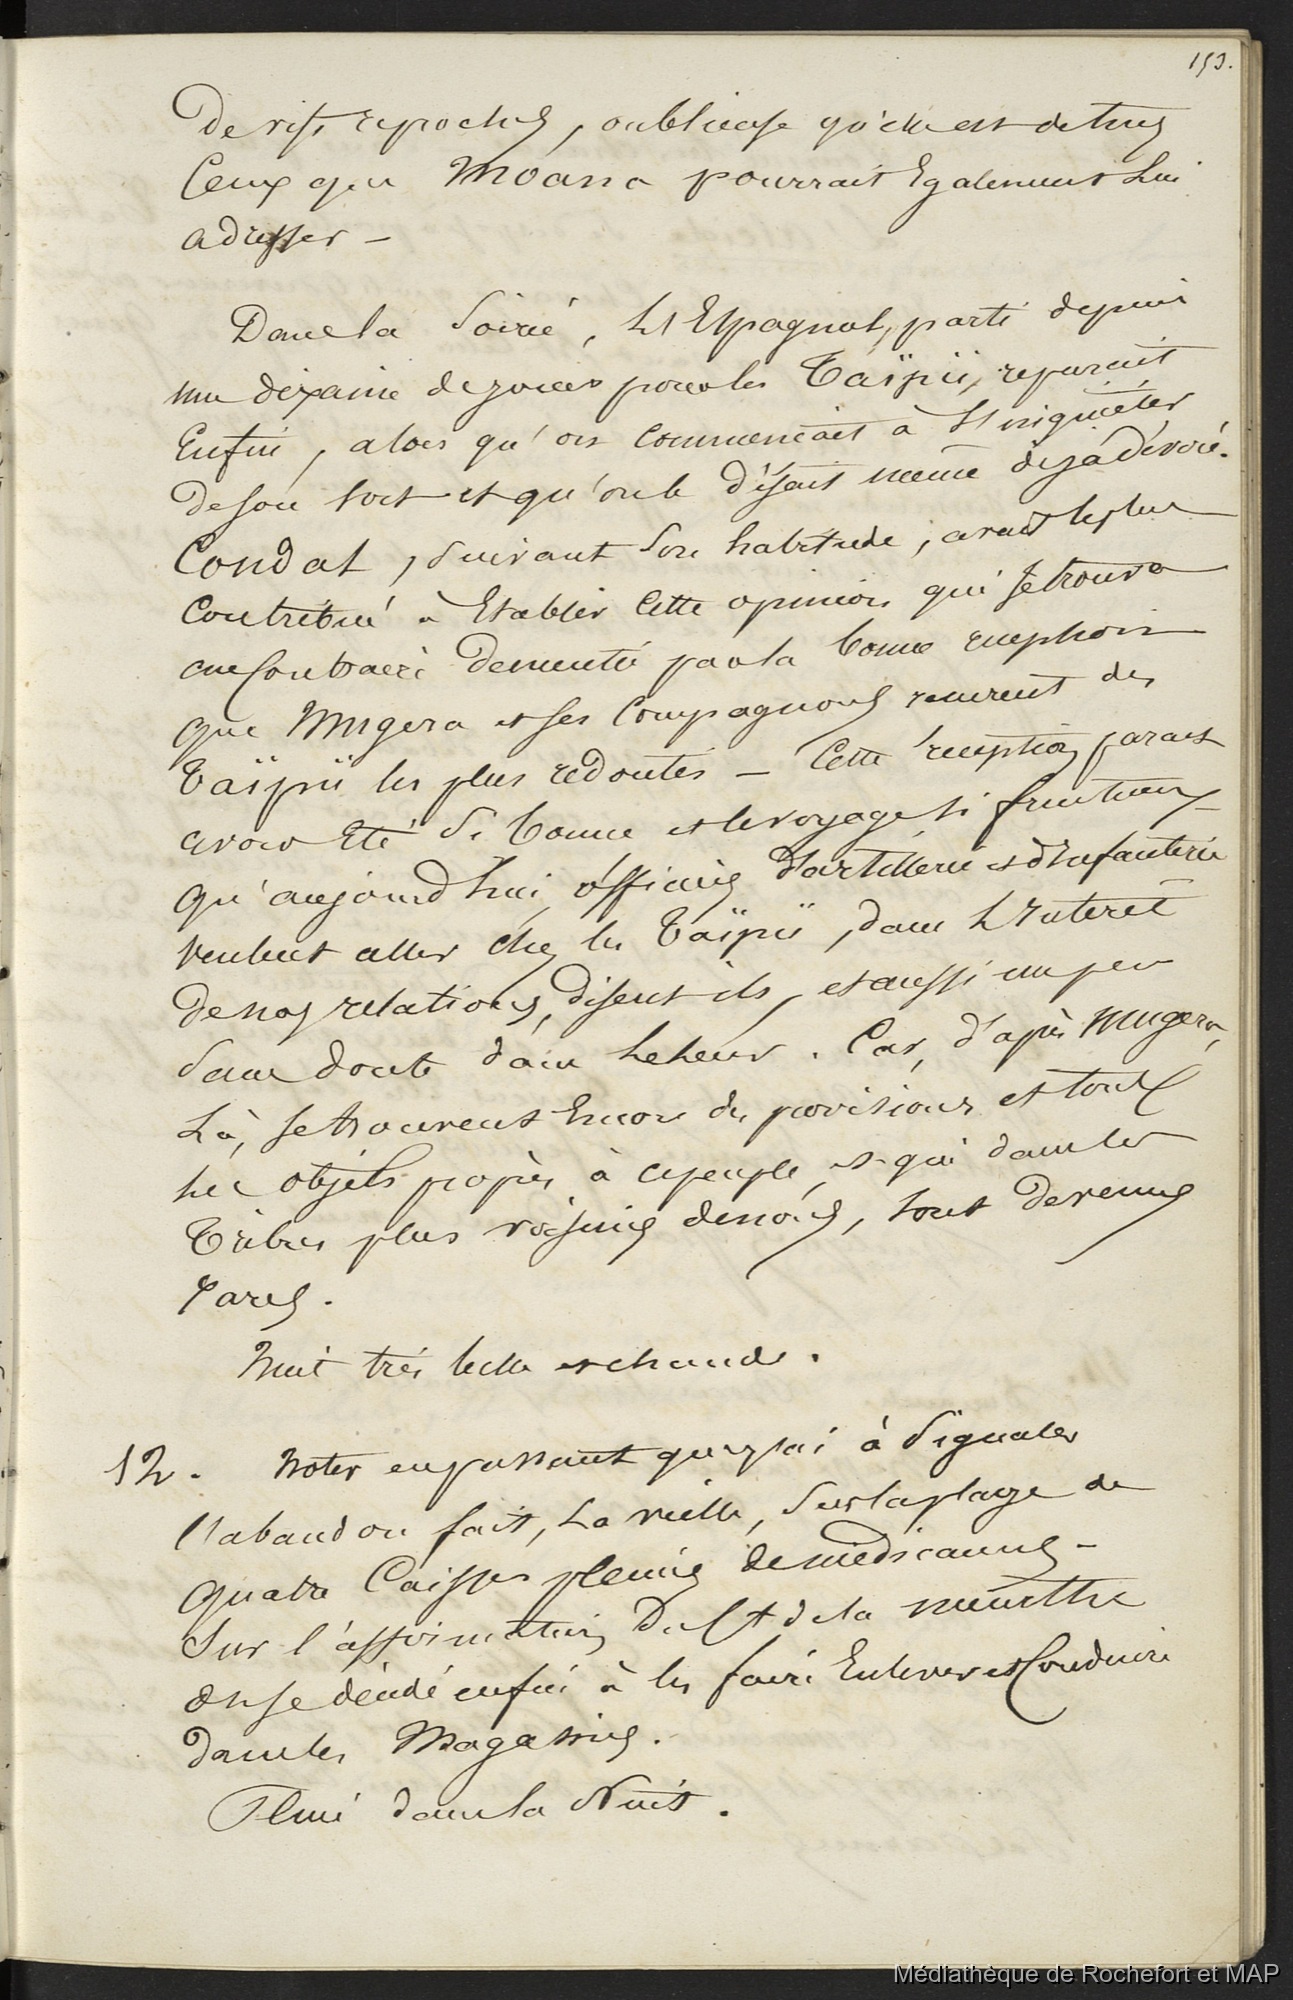 153.
De vifs reproches, oublieuse qu'elle est de tous
Ceux que Moana pourrait Egalement Lui
adresser —
Dans la Soirée, L'Espagnol, parti depuis
une dixaine de jours pour les Taïpii, reparait
Enfin, alors qu'on commencait à s'inquiéter
de son sort et qu'on le disait même déja dévoré.
Condat, suivant son habitude, avait le plus
Contribué à Etablir Cette opinion qui se trouva
au Contraire Dementie par la bonne reception
que Mugera et ses Compagnons recurent des
Taïpii les plus redoutés — Cette reception parait
avoir Eté si bonne et le voyage si fructueux
qu'aujourd'hui, officiers d'artillerie et d'Infanterie
veulent aller chez les Taïpii, dans L'Interêt
de nos relations, disent-ils, et aussi un peu
sans doute dans le leur. Car, d'après Mugera,
Là, se trouvent Encore des provisions et tous
les objets propres à ce peuple et qui dans les
Tribus plus voisines de nous, sont devenus
rares.
Nuit très belle et chaude.
12. Noter en passant que j'ai à signaler
l'abandon fait, La veille, sur la plage de
quatre Caisses pleines de médicaments —
Sur l'affirmation du Ct de la meurthe
on se décide enfin à les faire Enlever et Conduire
dans les Magasins.
Pluie dans la Nuit.
Médiathèque de Rochefort et MAP